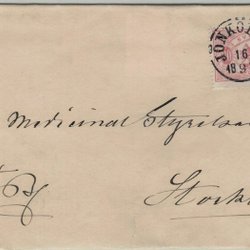 JÖNKÖ
16
189
Medicinal Styrelse
Stock